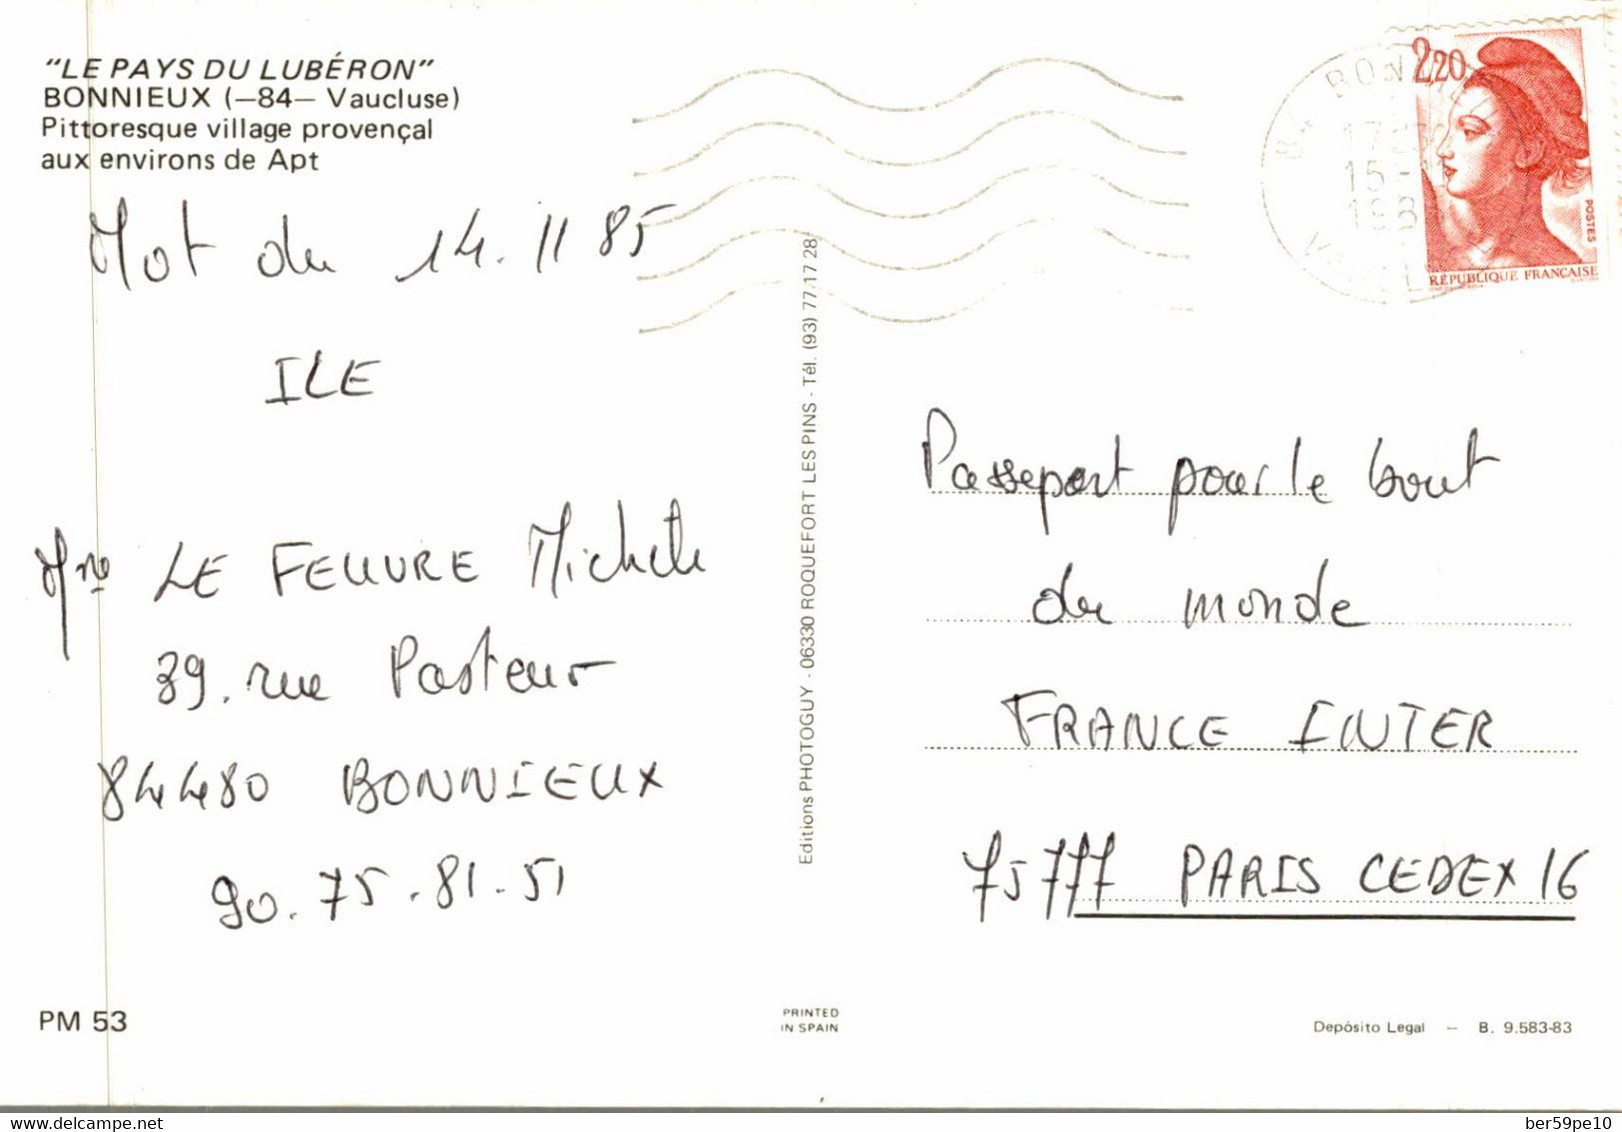 "LE PAYS DU LUBÉRON"
BONNIEUX (—84— Vaucluse)
Pittoresque village provençal
aux environs de Apt
Mot du 14.11 85
ILE
Mme LE FEUVRE Michele
39. rue Pasteur
84480 BONNIEUX
90.75.81.51
PM 53
Editions PHOTOGUY - 06330 ROQUEFORT LES PINS - Tél. (93) 77.17 28
PRINTED
IN SPAIN
2,20
POSTES
REPUBLIQUE FRANCAISE
Passeport pour le bout
du monde
FRANCE INTER
75777 PARIS CEDEX 16
Depósito Legal — B. 9.583-83
ber59pe10